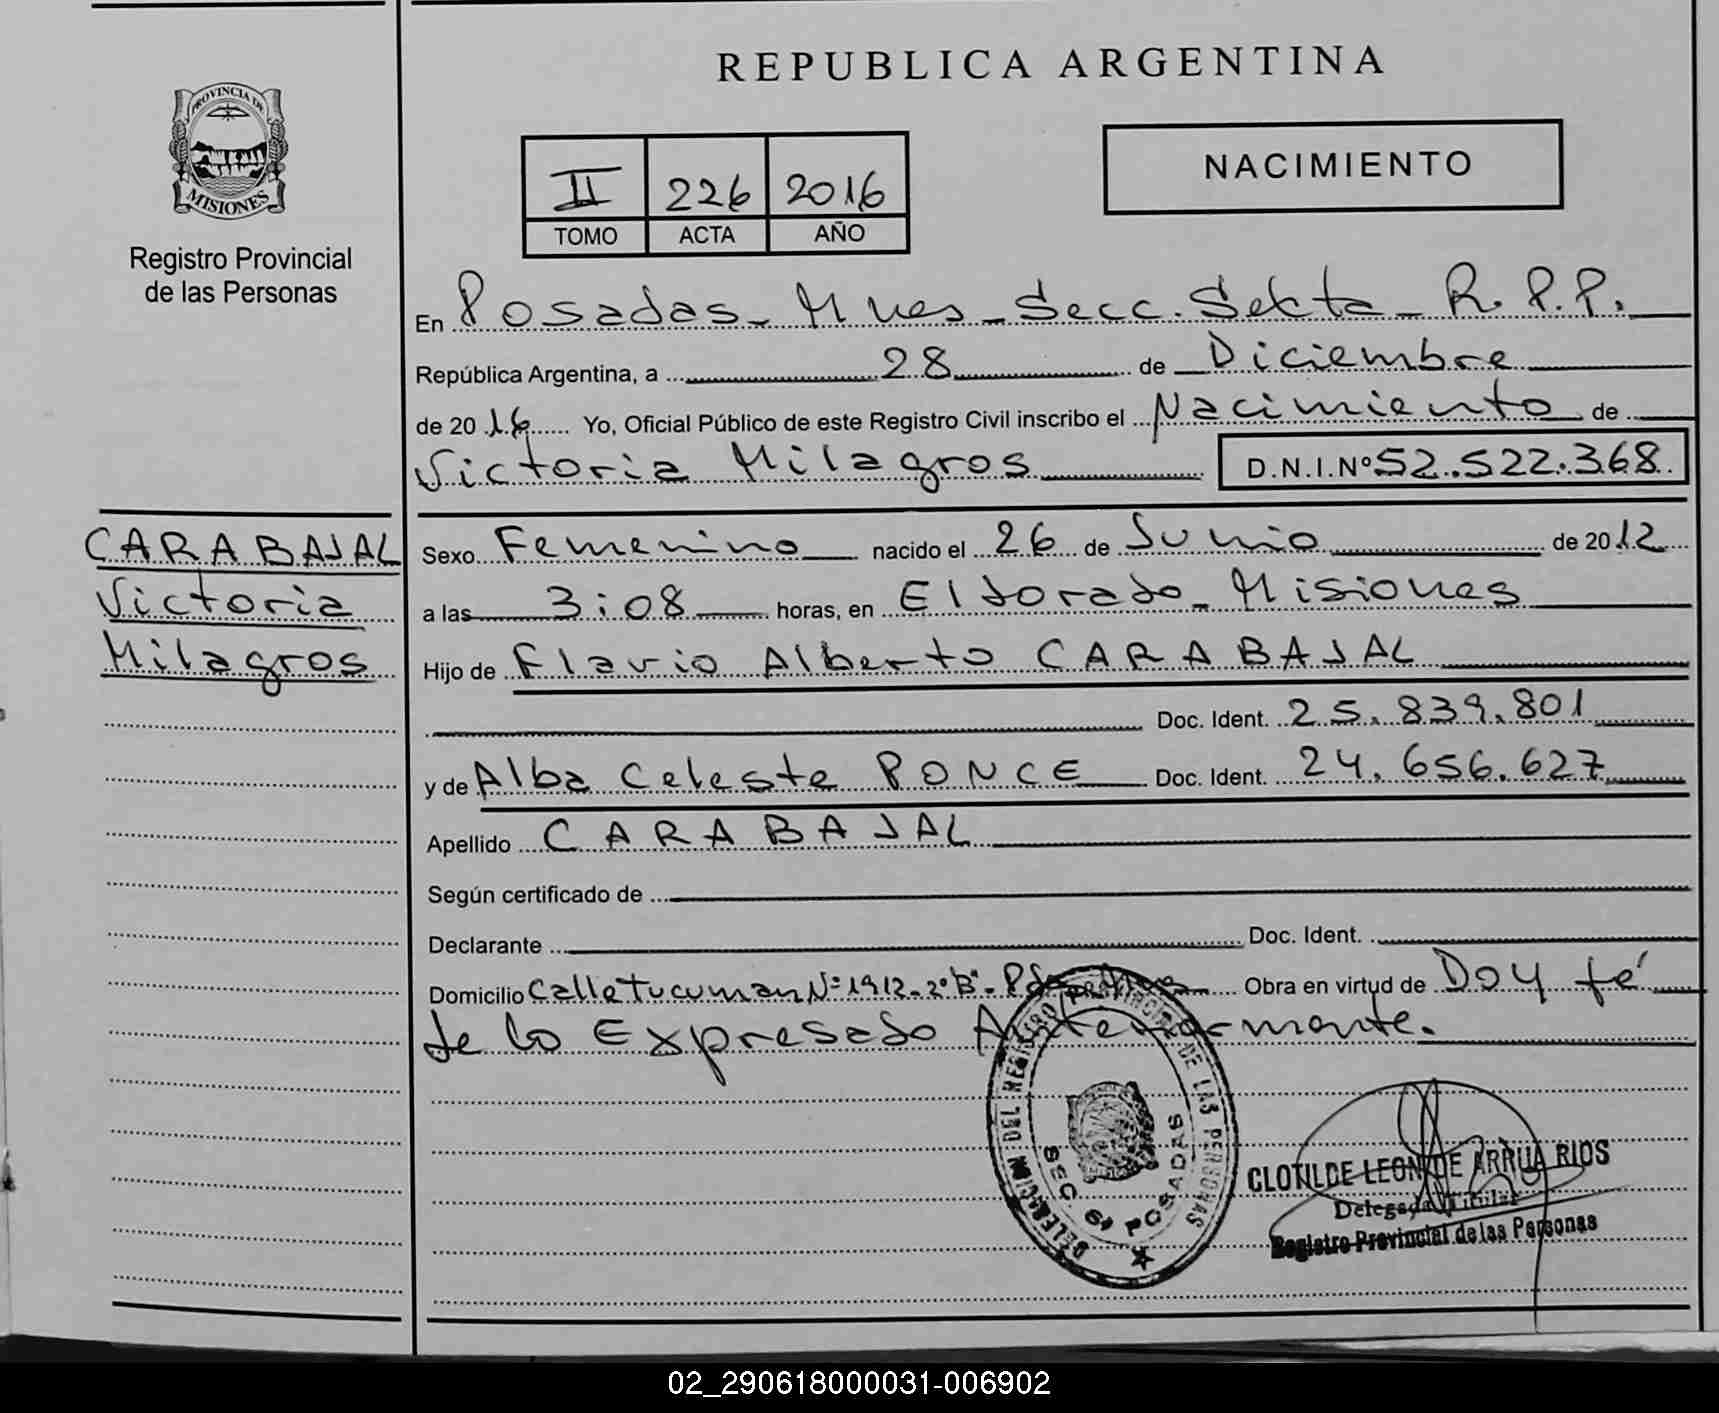 REPUBLICA ARGENTINA
PROVINCIA DE
MISIONES
Registro Provincial
de las Personas
NACIMIENTO
II 226 2016
TOMO ACTA AÑO
En Posadas - Mnes - Secc. Sekta - R.P.P.
República Argentina, a 28 de Diciembre
de 2016 Yo, Oficial Público de este Registro Civil inscribo el Nacimiento de
Victoria Milagros D.N.I.Nº 52.522.368
CARABAJAL
Victoria
Milagros
Sexo Femenino nacido el 26 de Junio de 2012
a las 3:08 horas, en Eldorado - Misiones
Hijo de Flavio Alberto CARABAJAL
Doc. Ident. 25.839.801
y de Alba Celeste PONCE Doc. Ident. 24.656.627
Apellido CARABAJAL
Según certificado de
Declarante Doc. Ident.
Domicilio Calle Tucuman Nº 1912 - 2º B" - Obra en virtud de Doy fé
de lo Expresado Anteriormente.
DELEGACION DEL REGISTRO PROVINCIAL DE LAS PERSONAS
SEC. 6ª POSADAS
CLOTILDE LEON DE ARRUA RIOS
Delegada Titular
Registro Provincial de las Personas
02_290618000031-006902